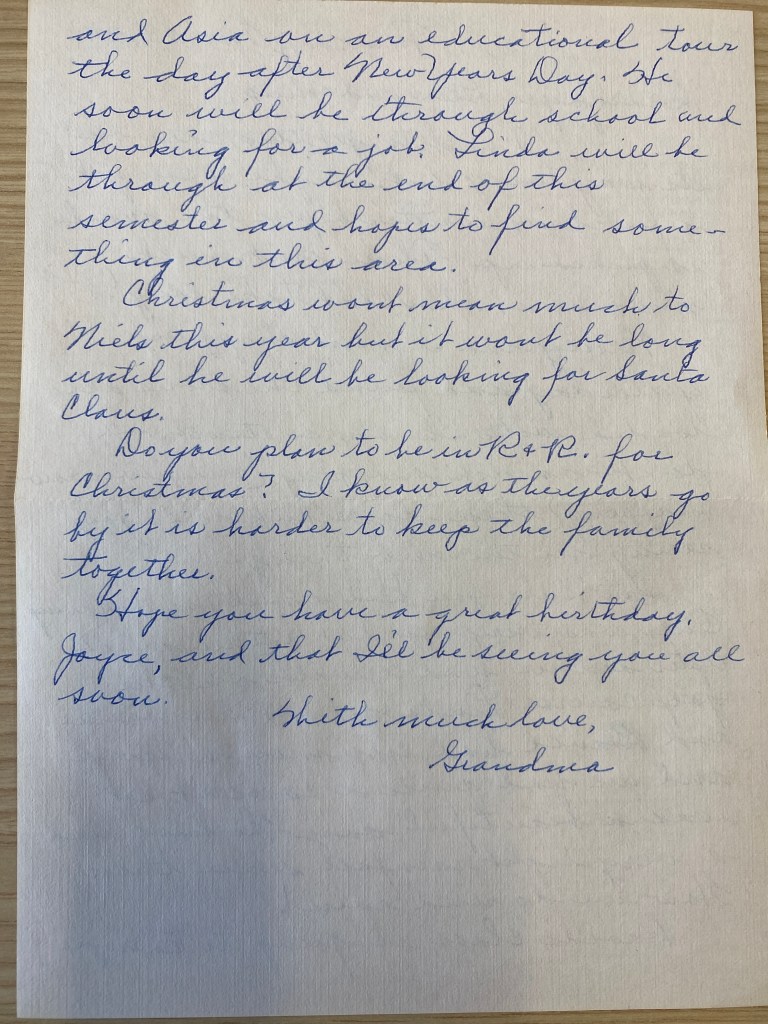 and Asia on an educational tour
the day after New Years Day. He
soon will be through school and
looking for a job. Linda will be
through at the end of this
semester and hopes to find some-
thing in this area.
Christmas wont mean much to
Niels this year but it wont be long
until he will be looking for Santa
Claus.
Do you plan to be in R & R. for
Christmas? I know as the years go
by it is harder to keep the family
together.
Hope you have a great birthday,
Joyce, and that I'll be seeing you all
soon.
With much love,
Grandma